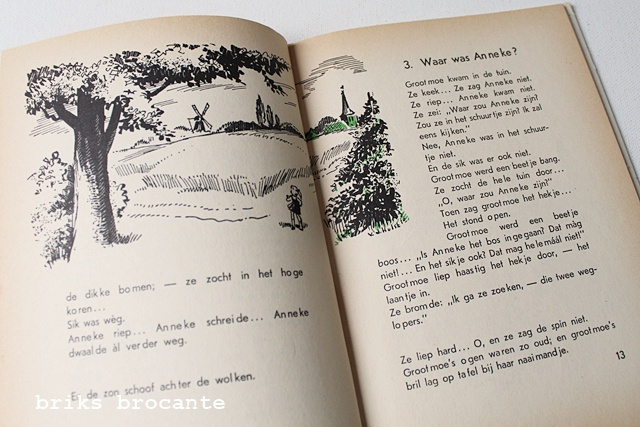 de dikke bomen; — ze zocht in het hoge
koren...
Sik was wèg.
Anneke riep... Anneke schreide... Anneke
dwaalde ál verder weg.
En de zon schoof achter de wolken.
briks brocante
3. Waar was Anneke?
Grootmoe kwam in de tuin.
Ze keek... Ze zag Anneke niet.
Ze riep... Anneke kwam niet.
Ze zei: „Waar zou Anneke zijn?
Zou ze in het schuurtje zijn? Ik zal
eens kijken."
Nee, Anneke was in het schuur-
tje niet.
En de sik was er ook niet.
Grootmoe werd een beetje bang.
Ze zocht de hele tuin door...
„O, waar zou Anneke zijn?"
Toen zag grootmoe het hekje...
Het stond open.
Grootmoe werd een beetje
boos... „Is Anneke het bos ingegaan? Dat màg
niet!... En het sikje ook? Dat mag helemáál niet!"
Grootmoe liep haastig het hekje door, — het
laantje in.
Ze bromde: „Ik ga ze zoeken, — die twee weg-
lopers."
Ze liep hard... O, en ze zag de spin niet.
Grootmoe's ogen waren zo oud; en grootmoe's
bril lag op tafel bij haar naaimandje.
13